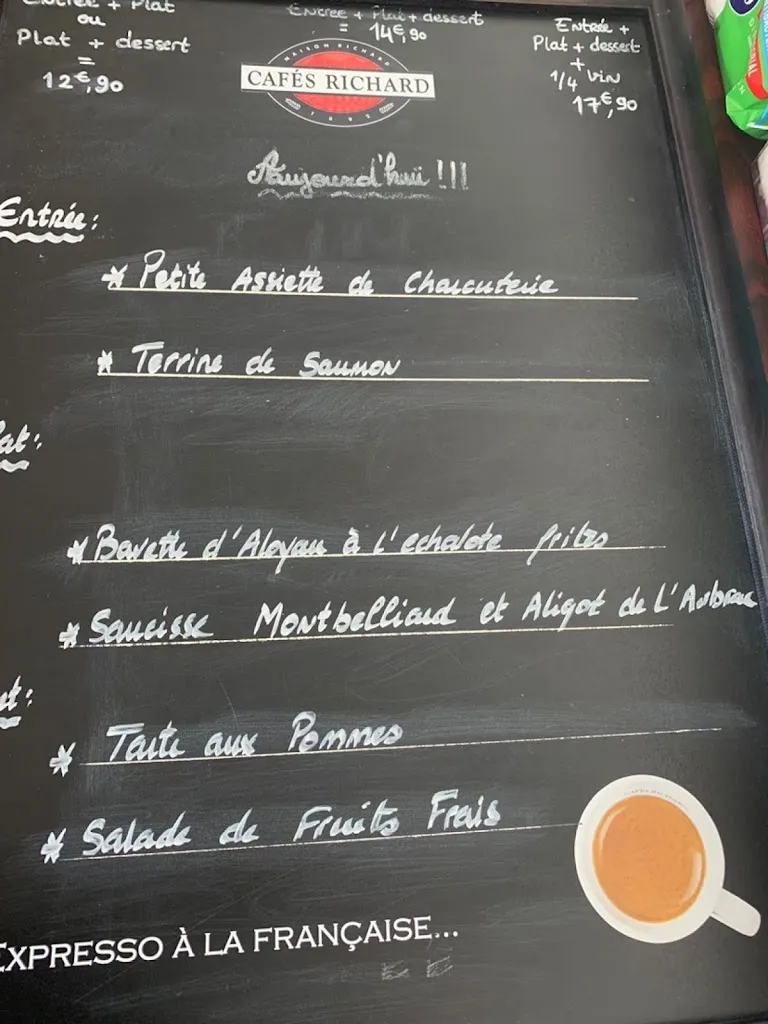 Entrée + Plat
ou
Plat + dessert
=
12€,90
Entrée + Plat + dessert
=
14€,90
Entrée +
Plat + dessert
+
1/4 Vin
17€,90
MAISON RICHARD
CAFÉS RICHARD
1892
Aujourd'hui !!!
Entrée:
* Petite Assiette de Charcuterie
* Terrine de Saumon
lat:
* Bavette d'Aloyau à l'echalote frites
* Saucisse Montbelliard et Aligot de L'Aubrac
t:
* Tarte aux Pommes
* Salade de Fruits Frais
EXPRESSO À LA FRANÇAISE...